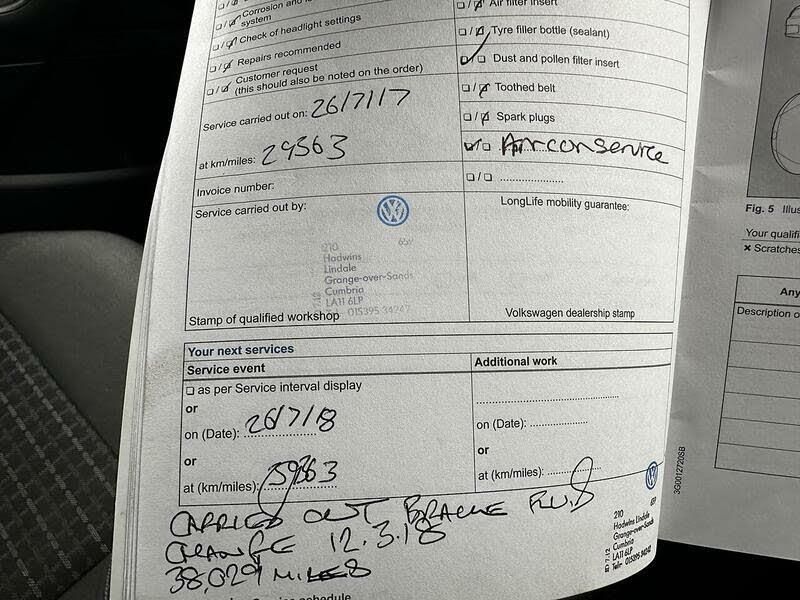 Corrosion and
system
Check of headlight settings
Repairs recommended
Customer request
(this should also be noted on the order)
Service carried out on: 26/7/17
at km/miles: 29563
Invoice number:
Service carried out by:
210 659
Hadwins
Lindale
Grange-over-Sands
Cumbria
LA11 6LP
015395 34242
Stamp of qualified workshop
Air filter insert
Tyre filler bottle (sealant)
Dust and pollen filter insert
Toothed belt
Spark plugs
Aircon service
LongLife mobility guarantee:
Volkswagen dealership stamp
Your next services
Service event
as per Service interval display
or
on (Date): 26/7/18
or
at (km/miles):
Additional work
on (Date):
or
at (km/miles):
CARRIED OUT BRAKE FLUID
CHANGE 12.3.18
38,029 MILES
210 659
Hadwins Lindale
Grange-over-Sands
Cumbria
LA11 6LP
Tel:- 015395 34242
3G0012720SB
Fig. 5
Your
Scratches
Any
Description